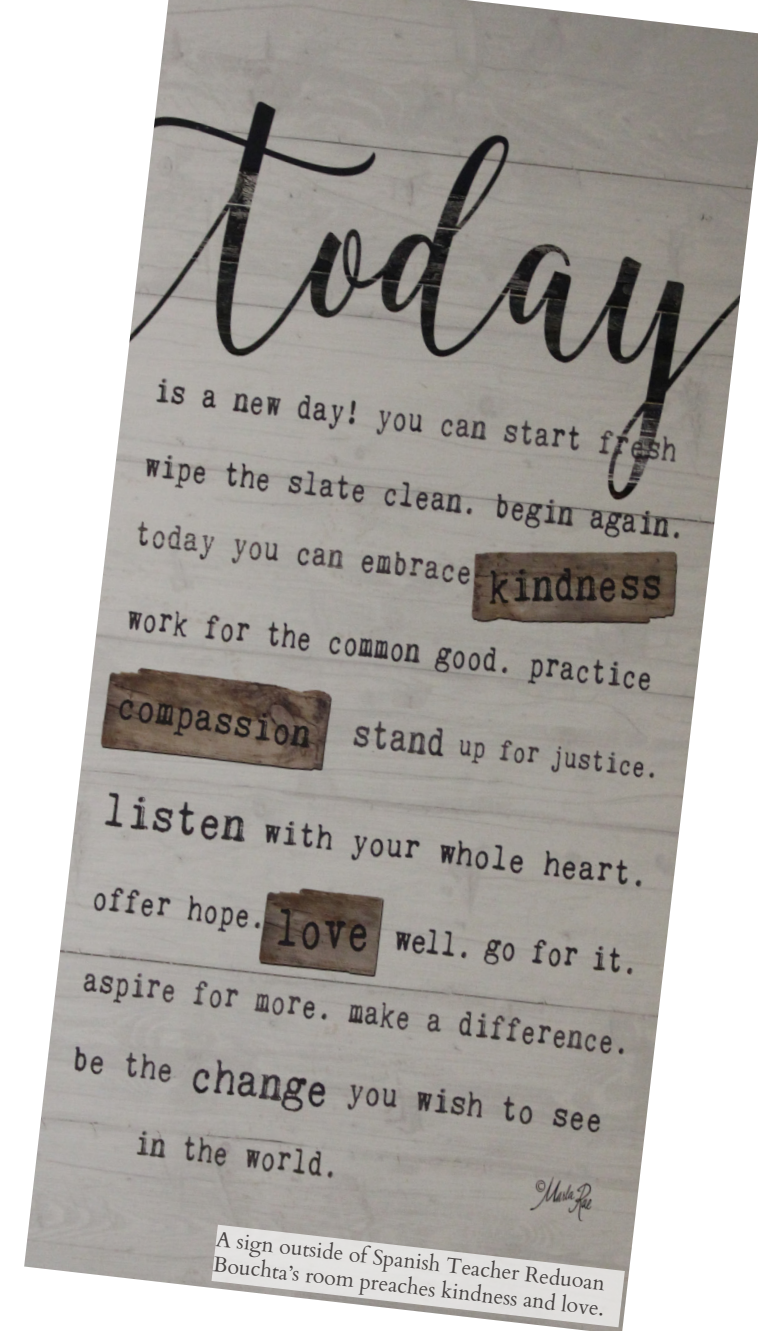 today
is a new day! you can start fresh
wipe the slate clean. begin again.
today you can embrace kindness
work for the common good. practice
compassion stand up for justice.
listen with your whole heart.
offer hope. love well. go for it.
aspire for more. make a difference.
be the change you wish to see
in the world.
©Marla Rae
A sign outside of Spanish Teacher Reduoan
Bouchta's room preaches kindness and love.